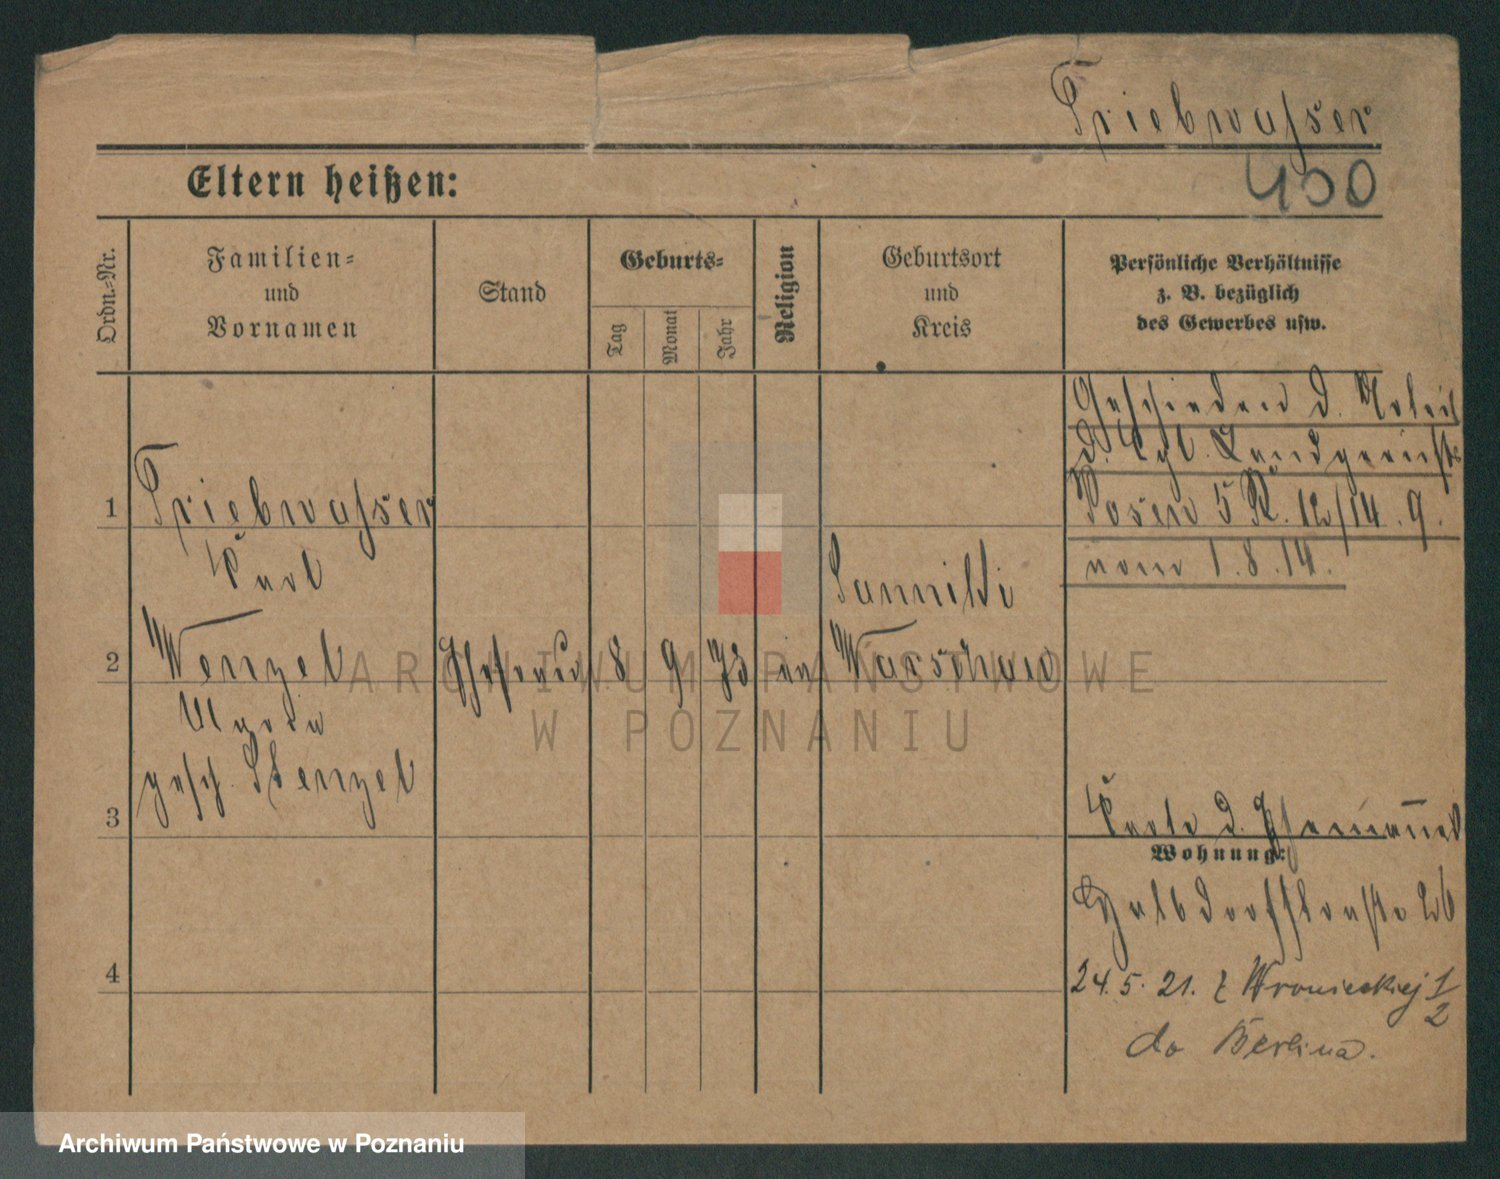 Triebwasser
450
Eltern heißen:
Ordn.-Nr.
Familien-
und
Vornamen
Stand
Geburts-
Tag
Monat
Jahr
Religion
Geburtsort
und
Kreis
Persönliche Verhältnisse
z. B. bezüglich
des Gewerbes usw.
Geschieden d. Urteil
d. Kgl. Landgerichts
Posen 5 R. 12/14.9.
vom 1.8.14.
1
Triebwasser
Karl
2
Wenzel
gesch. Stenzel
Ehefrau
8
9
73
ev
Warschau
3
Karte d. Ehemannes
Wohnung:
Halbdorfstraße 26
4
24.5.21. z Wronieckiej 1/2
do Berlina.
ARCHIWUM PAŃSTWOWE
W POZNANIU
Archiwum Państwowe w Poznaniu